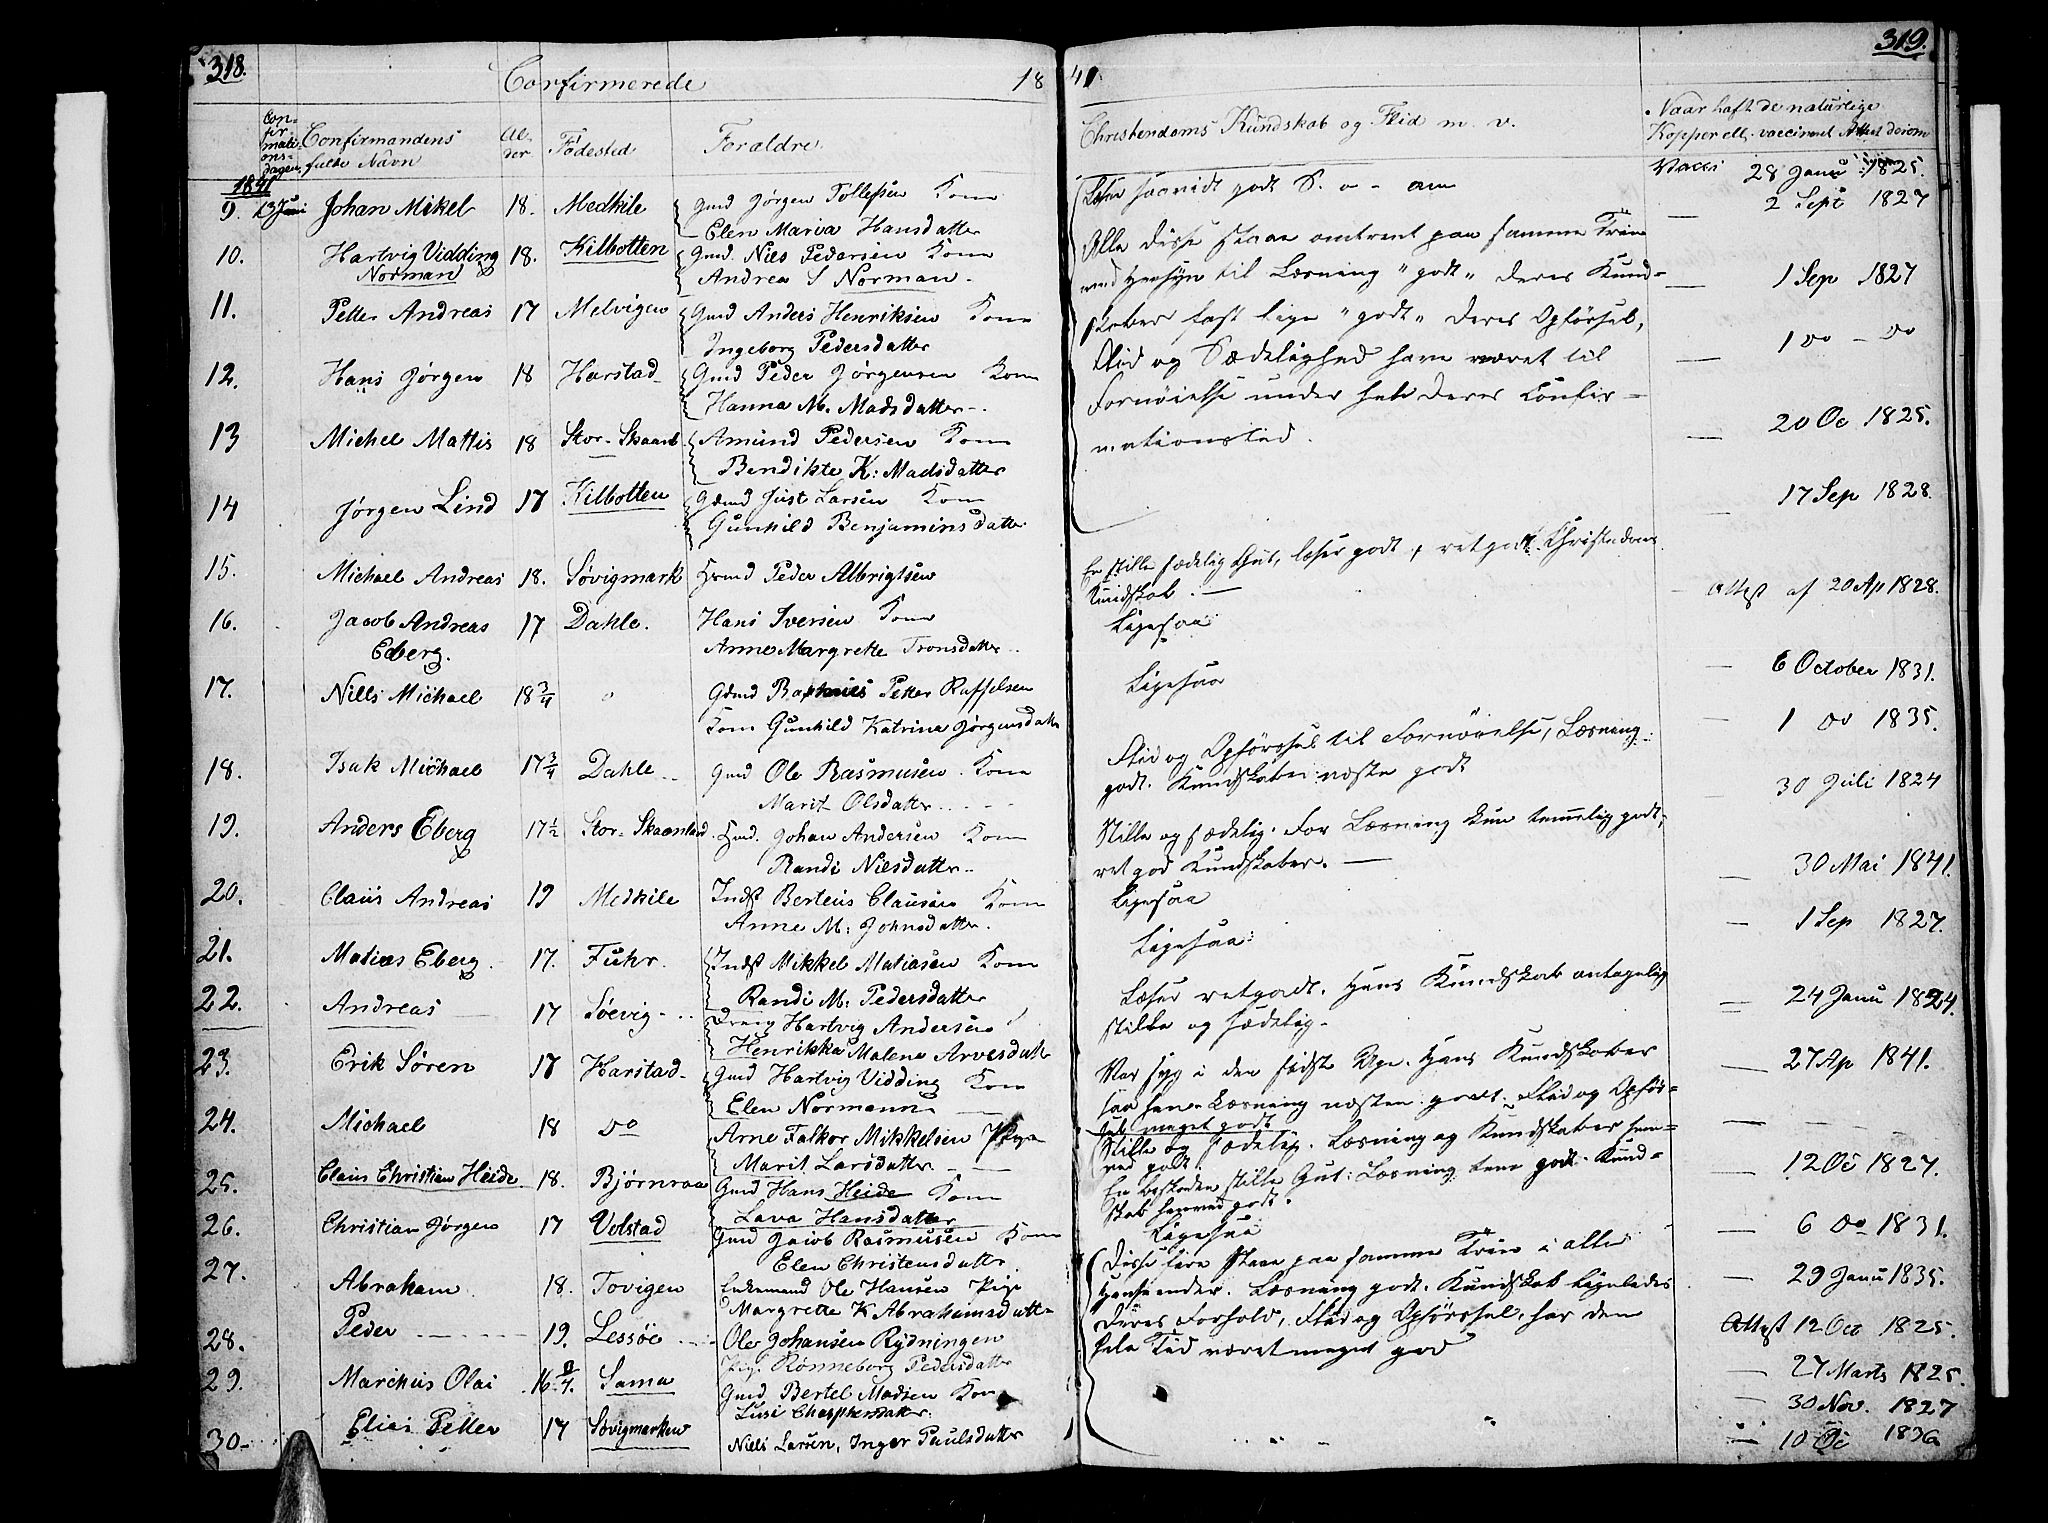 318.
Confirmerede 18
Con-
fir
mati
ons-
dagen
Confirmandens
fulde Navn
Al-
der
Födested
Foraldre
1841
9. 13 Juni Johan Mikel 18. Medkile Gmd Jörgen Tollefsen Kone
Elen Maria Hansdatter
10. Hartvig Vidding 18. Kilbotten Gmd. Niels Pedersen Kone
Norman Andrea S Norman
11. Petter Andreas 17 Melvigen Gmd Anders Henriksen Kone
Ingeborg Pedersdatter
12. Hans Jörgen 18 Harstad Gmd Peder Jörgensen Kone
Hanna M. Madsdatter
13 Michel Mattis 18 Stor-Skaanl Amund Pedersen Kone
Bendikte K: Madsdatter
14 Jörgen Lind 17 Kilbotten Gmd Just Larsen Kone
Gunhild Benjaminsdatter
15. Michael Andreas 18. Sövigmark Hmd Peder Albrigtsen
16. Jacob Andreas 17 Dahle. Hans Iversen Kone
Eberg. Anne Margrette Tronsdatter
17. Nills Michael 18 3/4 Gmd Petter Raffelsen
Kone Gunhild Katrina Jörgensdatter
18. Isak Michael 17 3/4 Dahle Gmd Ole Rasmusen Kone
Marit Olsdatter
19. Anders Eberg 17 1/2 Stor-Skaanland Hmd. Johan Andersen Kone
Randi Nielsdatter
20. Claus Andreas 19 Medkile Indst Berteus Clausen Kone
Anne M: Johnsdatter.
21. Matias Eberg. 17. Fuhr. Indst Mikkel Matiasen Kone
Randi M: Pedersdatter
22. Andreas 17 Söevig Dreng Hartvig Andersen
Henrikka Malena Arvesdatter
23. Erik Sören 17 Harstad Gmd Hartvig Vidding Kone
Elen Normann
24. Michael 18 do Arne Falkor Mikkelsen Pige
Marit Larsdatter
25. Claus Christian Heide 18. Björnraa Gmd Hans Heide Kone
Lava Hansdatter
26. Christian Jörgen 17 Volstad Gmd Jacob Rasmusen Kone
Elen Christensdatter
27. Abraham 18. Tovigen Enkemand Ole Hansen Pige
Margrette K Abrahamsdatter
28. Peder 19. Lessöe Ole Johansen Rydningen
Pige Rönneborg Pedersdatter
29. Marchus Olai 16 Sama Gmd Bertel Madsen Kone
Lusi
30 Elias Petter 17 Sövigmarken Niels Larsen, Inger Paulsdatter
41. 319.
Christendoms Kundskab og Flid m. v.
Naar haft de naturlige
Kopper ell. vaccineret Attest derom
Læser saavidt godt S. o - am Vacci 28 Janu 1825.
— 2 Sept 1827
Alle disse staae omtrent paa samme Trin
med Hensyn til Læsning "godt" deres Kund- — 1 Sep 1827
skaber fast lige "godt" deres Opförsel, — 1 do - do
Flid og Sædelighed have været til
Fornöielse under hele deres Confir- — 20 Oc 1825.
mationstid.
— 17 Sep 1828.
En stille sædelig Gut, læser godt, retgodt Christendoms
Kundskab. — Attest af 20 Ap 1828.
Ligesaa
— 6 October 1831.
Ligesaa
— 1 do 1835.
Flid og Opförsel til Fornöielse, Læsning
godt. Kundskaber næsten godt — 30 Juli 1824
Stille og sædelig. For Læsning kun temmelig godt,
ret god Kundskaber. — — 30 Mai 1841.
Ligesaa
— 1 Sep 1827.
Ligesaa:
Læser retgodt. Hans Kundskab antagelig — 24 Janu 1824.
stille og sædelig.
Var syg i den sidste Uge. Hans Kundskaber — 27 Ap 1841.
saa hans Læsning næsten godt. Flid og Opför-
sel meget godt
Stille og sædelig. Læsning og Kundskaber
godt.
En beskeden stille Gut: Læsning godt. Kund- — 12 Oc 1827.
skab
Ligesaa — 6 do 1831.
Disse fire staae paa samme Trin i alle
Henseender. Læsning godt. Kundskab ligeledes — 29 Janu 1835.
Deres Forhold, Flid og Opförsel, har den Attest 12 Oct 1825.
hele Tid været meget god — 27 Marts 1825.
— 30 Nov. 1827
— 10 Oc 1836